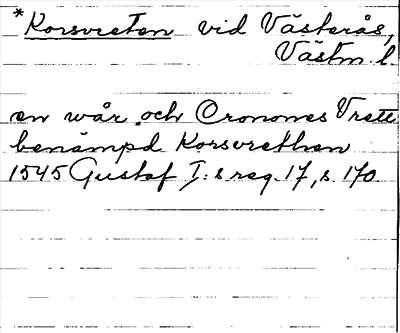 *Korsvreten vid Västerås,
Västm l.
en wår och Cronones Vrett
benämpd Korsvrethen
1545 Gustaf I:s reg. 17, s. 170